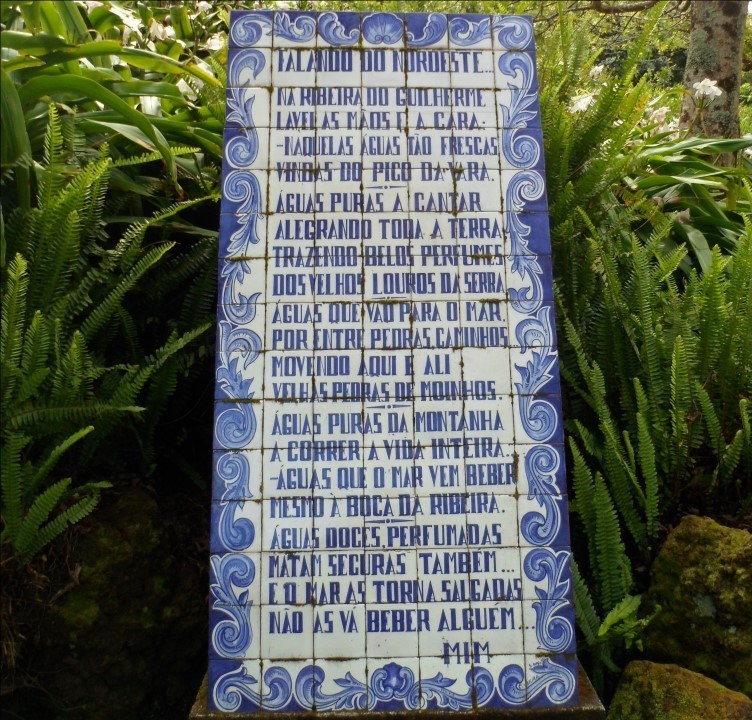 FALANDO DO NORDESTE...
NA RIBEIRA DO GUILHERME
LAVEI AS MÃOS E A CARA.
-NAQUELAS ÁGUAS TÃO FRESCAS
VINDAS DO PICO DA VARA.
ÁGUAS PURAS A CANTAR
ALEGRANDO TODA A TERRA
TRAZENDO BELOS PERFUMES
DOS VELHOS LOUROS DA SERRA
ÁGUAS QUE VÃO PARA O MAR,
POR ENTRE PEDRAS, CAMINHOS,
MOVENDO AQUI E ALI
VELHAS PEDRAS DE MOINHOS.
ÁGUAS PURAS DA MONTANHA
A CORRER A VIDA INTEIRA..
-ÁGUAS QUE O MAR VEM BEBER
MESMO À BOCA DA RIBEIRA.
ÁGUAS DOCES, PERFUMADAS
MATAM SEGURAS TAMBÉM...
E O MAR AS TORNA SALGADAS
NÃO AS VÁ BEBER ALGUEM...
MIM